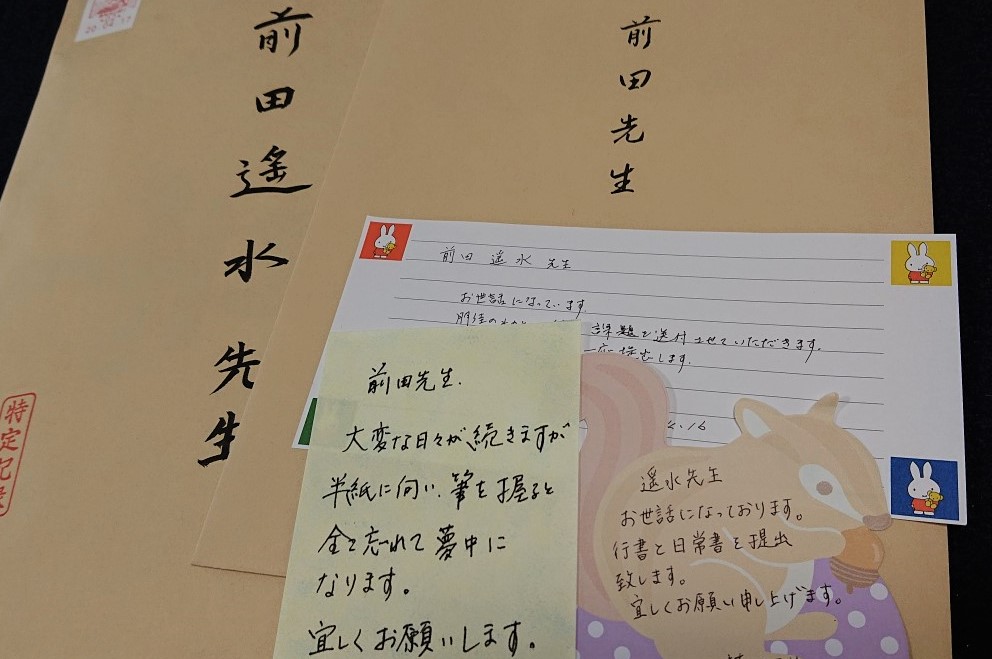 前田遥水先生
特定記録
前田先生
前田遥水先生
お世話になっています。
課題を送付させていただきます。
します。
前田先生.
大変な日々が続きますが
半紙に向い、筆を握ると
全て忘れて夢中に
なります。
宜しくお願いします。
遥水先生
お世話になっております。
行書と日常書を提出
致します。
宜しくお願い申し上げます。